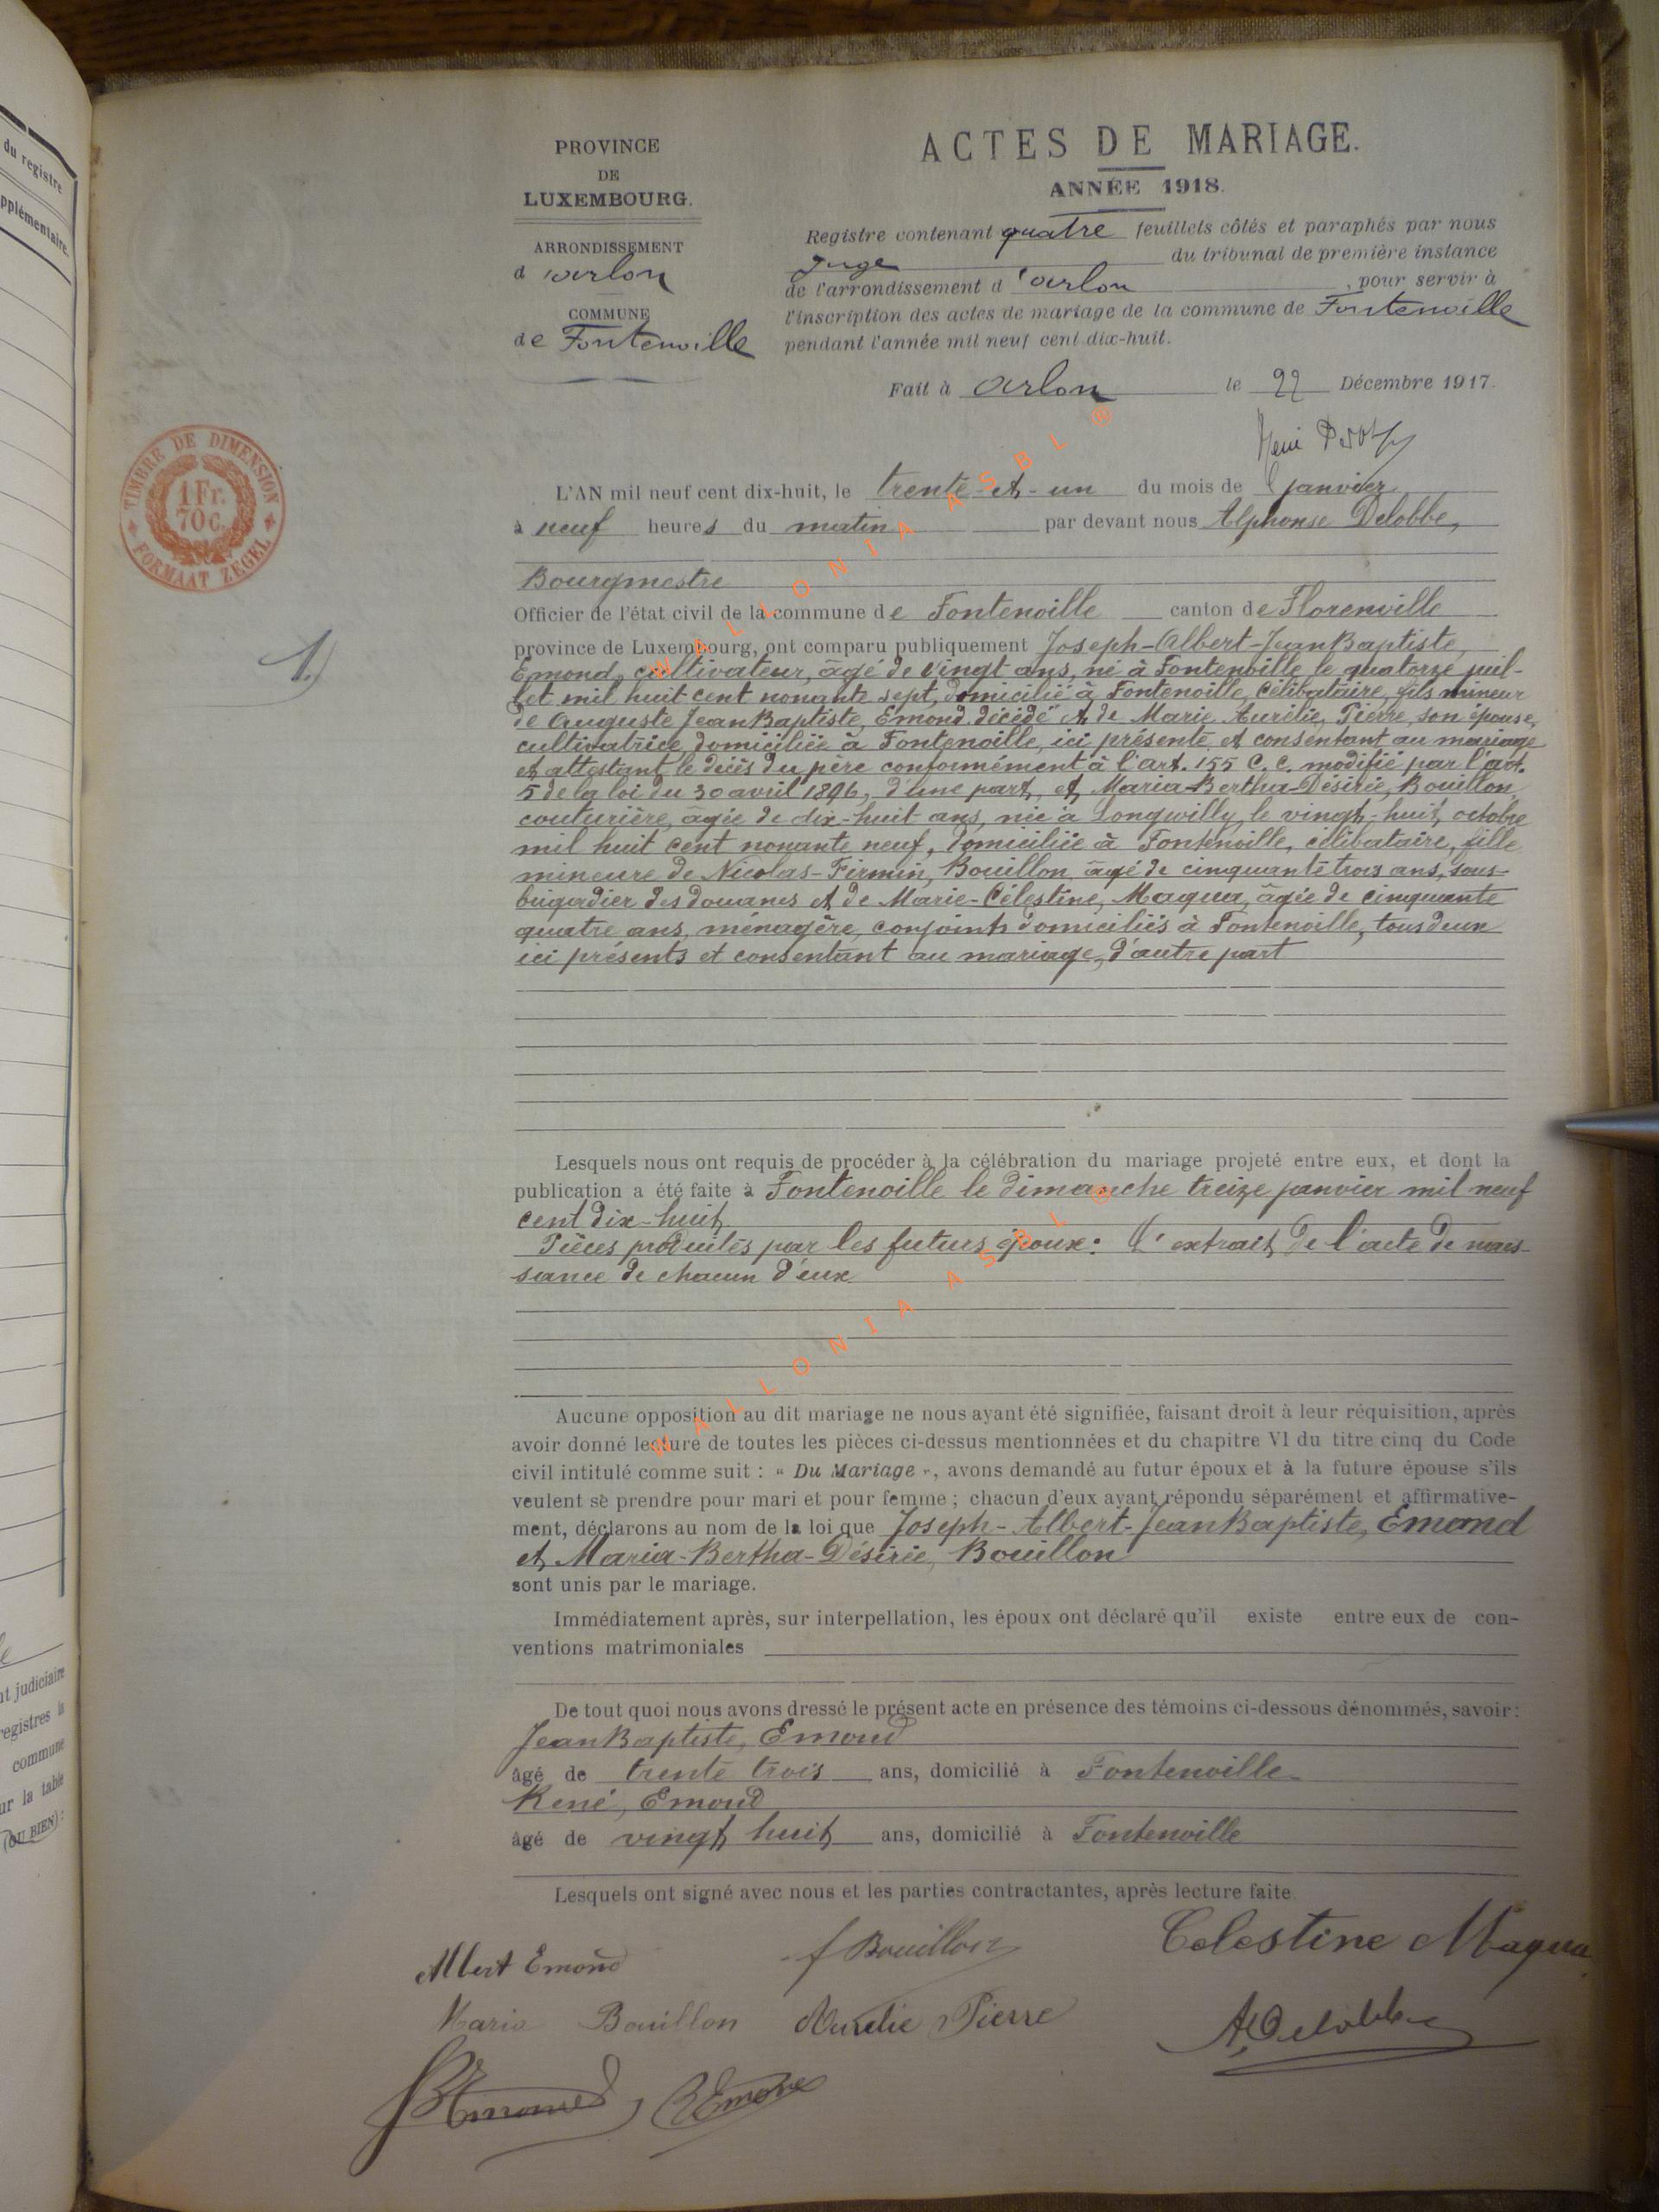 du registre
pplémentaire
PROVINCE
DE
LUXEMBOURG.
ARRONDISSEMENT
d'Arlon
COMMUNE
de Fontenoille
ACTES DE MARIAGE.
ANNÉE 1918.
Registre contenant quatre feuillets côtés et paraphés par nous
Juge du tribunal de première instance
de l'arrondissement d'Arlon, pour servir à
l'inscription des actes de mariage de la commune de Fontenoille
pendant l'année mil neuf cent dix-huit.
Fait à Arlon le 22 Décembre 1917.
TIMBRE DE DIMENSION
1 Fr.
70 c.
FORMAAT ZEGEL
1)
L'AN mil neuf cent dix-huit, le trente-et-un du mois de janvier
à neuf heures du matin par devant nous Alphonse Delobbe,
Bourgmestre
Officier de l'état civil de la commune de Fontenoille canton de Florenville
province de Luxembourg, ont comparu publiquement Joseph-Albert-JeanBaptiste,
Emond, cultivateur, âgé de vingt ans, né à Fontenoille le quatorze juil-
let mil huit cent nonante sept, domicilié à Fontenoille, célibataire, fils mineur
de Auguste JeanBaptiste, Emond décédé et de Marie Aurélie, Pierre, son épouse,
cultivatrice, domiciliée à Fontenoille, ici présente et consentant au mariage
et attestant le décès du père conformément à l'art. 155 C. C. modifié par l'art.
5 de la loi du 30 avril 1896, d'une part, et Maria-Bertha-Désirée, Bouillon,
couturière, âgée de dix-huit ans, née à Longwilly, le vingt-huit octobre
mil huit cent nonante neuf, domiciliée à Fontenoille, célibataire, fille
mineure de Nicolas-Firmin, Bouillon, âgé de cinquante trois ans, sous-
brigadier des douanes et de Marie-Célestine, Maqua, âgée de cinquante
quatre ans, ménagère, conjoints domiciliés à Fontenoille, tous deux
ici présents et consentant au mariage, d'autre part
Lesquels nous ont requis de procéder à la célébration du mariage projeté entre eux, et dont la
publication a été faite à Fontenoille le dimanche treize janvier mil neuf
cent dix-huit
Pièces produites par les futurs époux: L'extrait de l'acte de nais-
sance de chacun d'eux
Aucune opposition au dit mariage ne nous ayant été signifiée, faisant droit à leur réquisition, après
avoir donné lecture de toutes les pièces ci-dessus mentionnées et du chapitre VI du titre cinq du Code
civil intitulé comme suit : « Du Mariage », avons demandé au futur époux et à la future épouse s'ils
veulent se prendre pour mari et pour femme ; chacun d'eux ayant répondu séparément et affirmative-
ment, déclarons au nom de la loi que Joseph-Albert-JeanBaptiste, Emond
et Maria-Bertha-Désirée, Bouillon
sont unis par le mariage.
Immédiatement après, sur interpellation, les époux ont déclaré qu'il existe entre eux de con-
ventions matrimoniales
De tout quoi nous avons dressé le présent acte en présence des témoins ci-dessous dénommés, savoir :
JeanBaptiste, Emond
âgé de trente trois ans, domicilié à Fontenoille
René, Emond
âgé de vingt huit ans, domicilié à Fontenoille
Lesquels ont signé avec nous et les parties contractantes, après lecture faite
Albert Emond
f Bouillon
Celestine Maqua
Maria Bouillon
Aurelie Pierre
A Delobbe
JBEmond
REmond
nt judiciaire
registres la
commune
ur la table
(OU BIEN) :
WALLONIA ASBL ®
WALLONIA ASBL ®